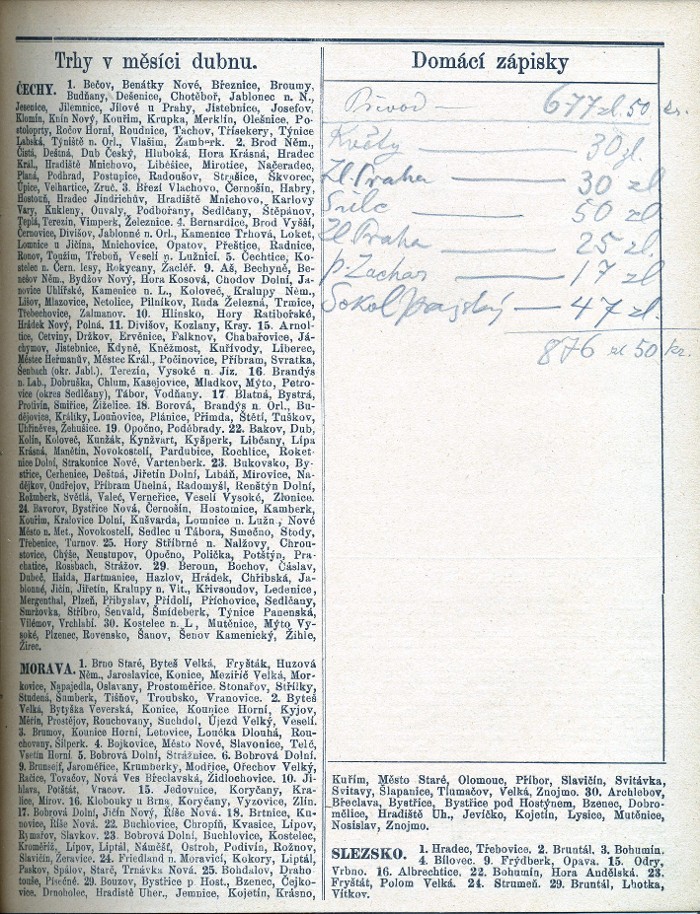 Trhy v měsíci dubnu.
ČECHY. 1. Bečov, Benátky Nové, Březnice, Broumy,
Budňany, Dešenice, Chotěboř, Jablonec n. N.,
Jesenice, Jilemnice, Jílové u Prahy, Jistebnice, Josefov,
Klomín, Knín Nový, Kouřim, Krupka, Merklín, Olešnice, Po-
stoloprty, Ročov Horní, Roudnice, Tachov, Třísekery, Týnice
Labská, Týniště n. Orl., Vlašim, Žamberk. 2. Brod Něm.,
Čistá, Deštná, Dub Český, Hluboká, Hora Krásná, Hradec
Král., Hradiště Mnichovo, Liběšice, Mirotice, Načeradec,
Planá, Podhrad, Postupice, Radoušov, Strašice, Škvorec,
Úpice, Velhartice, Zruč. 3. Březí Vlachovo, Černošín, Habry,
Hostouň, Hradec Jindřichův, Hradiště Mnichovo, Karlovy
Vary, Kukleny, Ouvaly, Podbořany, Sedlčany, Štěpánov,
Teplá, Terezín, Vimperk, Železnice. 4. Bernardice, Brod Vyšší,
Černovice, Divišov, Jablonné n. Orl., Kamenice Trhová, Loket,
Lomnice u Jičína, Mnichovice, Opatov, Přeštice, Radnice,
Ronov, Toužim, Třeboň, Veselí n. Lužnicí. 5. Čechtice, Ko-
stelec n. Čern. lesy, Rokycany, Žacléř. 9. Aš, Bechyně, Be-
nešov Něm., Bydžov Nový, Hora Kosová, Chodov Dolní, Ja-
novice Uhlířské, Kamenice n. L., Koloveč, Kralupy Něm.,
Lišov, Mlazovice, Netolice, Pilníkov, Ruda Železná, Trmice,
Třebechovice, Zalmanov. 10. Hlinsko, Hory Ratibořské,
Hrádek Nový, Polná. 11. Divišov, Kozlany, Krsy. 15. Arnol-
tice, Cetviny, Držkov, Ervěnice, Falknov, Chabařovice, Já-
chymov, Jistebnice, Kdyně, Kněžmost, Kuřivody, Liberec,
Městec Heřmanův, Městec Král., Počinovice, Příbram, Svratka,
Šenbach (okr. Jabl.). Terezín, Vysoké n. Jiz. 16. Brandýs
n. Lab., Dobruška, Chlum, Kasejovice, Mladkov, Mýto, Petro-
vice (okres Sedlčany), Tábor, Vodňany. 17. Blatná, Bystrá,
Protivín, Smiřice, Žíželice. 18. Borová, Brandýs n. Orl., Bu-
dějovice, Králíky, Louňovice, Plánice, Přimda, Štětí, Tuškov,
Uhříněves, Žehušice. 19. Opočno, Poděbrady. 22. Bakov, Dub,
Kolín, Koloveč, Kunžák, Kynžvart, Kyšperk, Libčany, Lípa
Krásná, Manětín, Novokostelí, Pardubice, Rochlice, Roket-
nice Dolní, Strakonice Nové, Vartenberk. 23. Bukovsko, By-
střice, Cerhenice, Deštná, Jiřetín Dolní, Libáň, Mirovice, Na-
dějkov, Ondřejov, Příbram Uhelná, Radomyšl, Renštýn Dolní,
Rožmberk, Světlá, Valeč, Verneřice, Veselí Vysoké, Zlonice.
24. Bavorov, Bystřice Nová, Černošín, Hostomice, Kamberk,
Kouřim, Kralovice Dolní, Kušvarda, Lomnice n. Lužn., Nové
Město n. Met., Novokostelí, Sedlec u Tábora, Smečno, Stody,
Třebenice, Turnov. 25. Hory Stříbrné n. Nalžovy, Chrou-
stovice, Chýše, Neustupov, Opočno, Polička, Potštýn, Pra-
chatice, Rossbach, Strážov. 29. Beroun, Bochov, Čáslav,
Dubeč, Haida, Hartmanice, Hazlov, Hrádek, Chřibská, Ja-
blonné, Jičín, Jiřetín, Kralupy n. Vlt., Křivsoudov, Ledenice,
Mergenthal, Plzeň, Přibyslav, Přídolí, Příchovice, Sedlčany,
Smržovka, Stříbro, Šenvald, Šmídeberk, Týnice Panenská,
Vilémov, Vrchlabí. 30. Kostelec n. L., Mutěnice, Mýto Vy-
soké, Plzenec, Rovensko, Šanov, Šenov Kamenický, Žihle,
Žirec.
MORAVA. 1. Brno Staré, Byteš Velká, Fryšták, Huzová
Něm., Jaroslavice, Konice, Meziříč Velká, Mor-
kovice, Napajedla, Oslavany, Prostoměřice. Stonařov, Střílky,
Studená, Šumberk, Tišňov, Troubsko, Vranovice. 2. Byteš
Velká, Bytyška Veverská, Konice, Kounice Horní, Kyjov,
Měřín, Prostějov, Rouchovany, Suchdol, Újezd Velký, Veselí.
3. Brumov, Kounice Horní, Letovice, Loučka Dlouhá, Rou-
chovany, Šilperk. 4. Bojkovice, Město Nové, Slavonice, Telč,
Vsetín Horní. 5. Bobrová Dolní, Strážnice. 6. Bobrová Dolní.
9. Brunsejf, Jaroměřice, Krumberky, Modřice, Ořechov Velký,
Račice, Tovačov, Nová Ves Břeclavská, Židlochovice. 10. Ji-
hlava, Potštát, Vracov. 15. Jedovnice, Koryčany, Kra-
lice, Mirov. 16. Klobouky u Brna, Koryčany, Vyzovice, Zlín.
17. Bobrová Dolní, Jičín Nový, Říše Nová. 18. Brtnice, Ku-
novice, Říše Nová. 22. Buchlovice, Chropíň, Kvasice, Lipov,
Rymařov, Slavkov. 23. Bobrová Dolní, Buchlovice, Kostelec,
Kroměříž, Lipov, Liptál, Náměšť, Ostroh, Podivín, Rožnov,
Slavičín, Žeravice. 24. Friedland n. Moravicí, Kokory, Liptál,
Paskov, Spálov, Staré, Trnávka Nová. 25. Bohdalov, Draho-
touše, Písečné. 29. Bouzov, Bystřice p. Host., Bzenec, Čejko-
vice. Drnoholec, Hradiště Uher., Jemnice, Kojetín, Krásno,
Domácí zápisky
Převod — 677 zl. 50 kr.
Květy — 30 zl.
Zl. Praha — 30 zl
Srdc — 50 zl
Zl Praha — 25 zl.
p. Zachar — 17 zl
Sokol pražský — 47 zl.
876 zl 50 kr.
Kuřim, Město Staré, Olomouc, Příbor, Slavičín, Svitávka,
Svitavy, Šlapanice, Tlumačov, Velká, Znojmo. 30. Archlebov,
Břeclava, Bystřice, Bystřice pod Hostýnem, Bzenec, Dobro-
mělice, Hradiště Uh., Jevíčko, Kojetín, Lysice, Mutěnice,
Nosislav, Znojmo.
SLEZSKO. 1. Hradec, Třebovice. 2. Bruntál. 3. Bohumín.
4. Bílovec. 9. Frýdberk, Opava. 15. Odry,
Vrbno. 16. Albrechtice. 22. Bohumín, Hora Andělská. 23.
Fryštát, Polom Velká. 24. Strumeň. 29. Bruntál, Lhotka,
Vítkov.